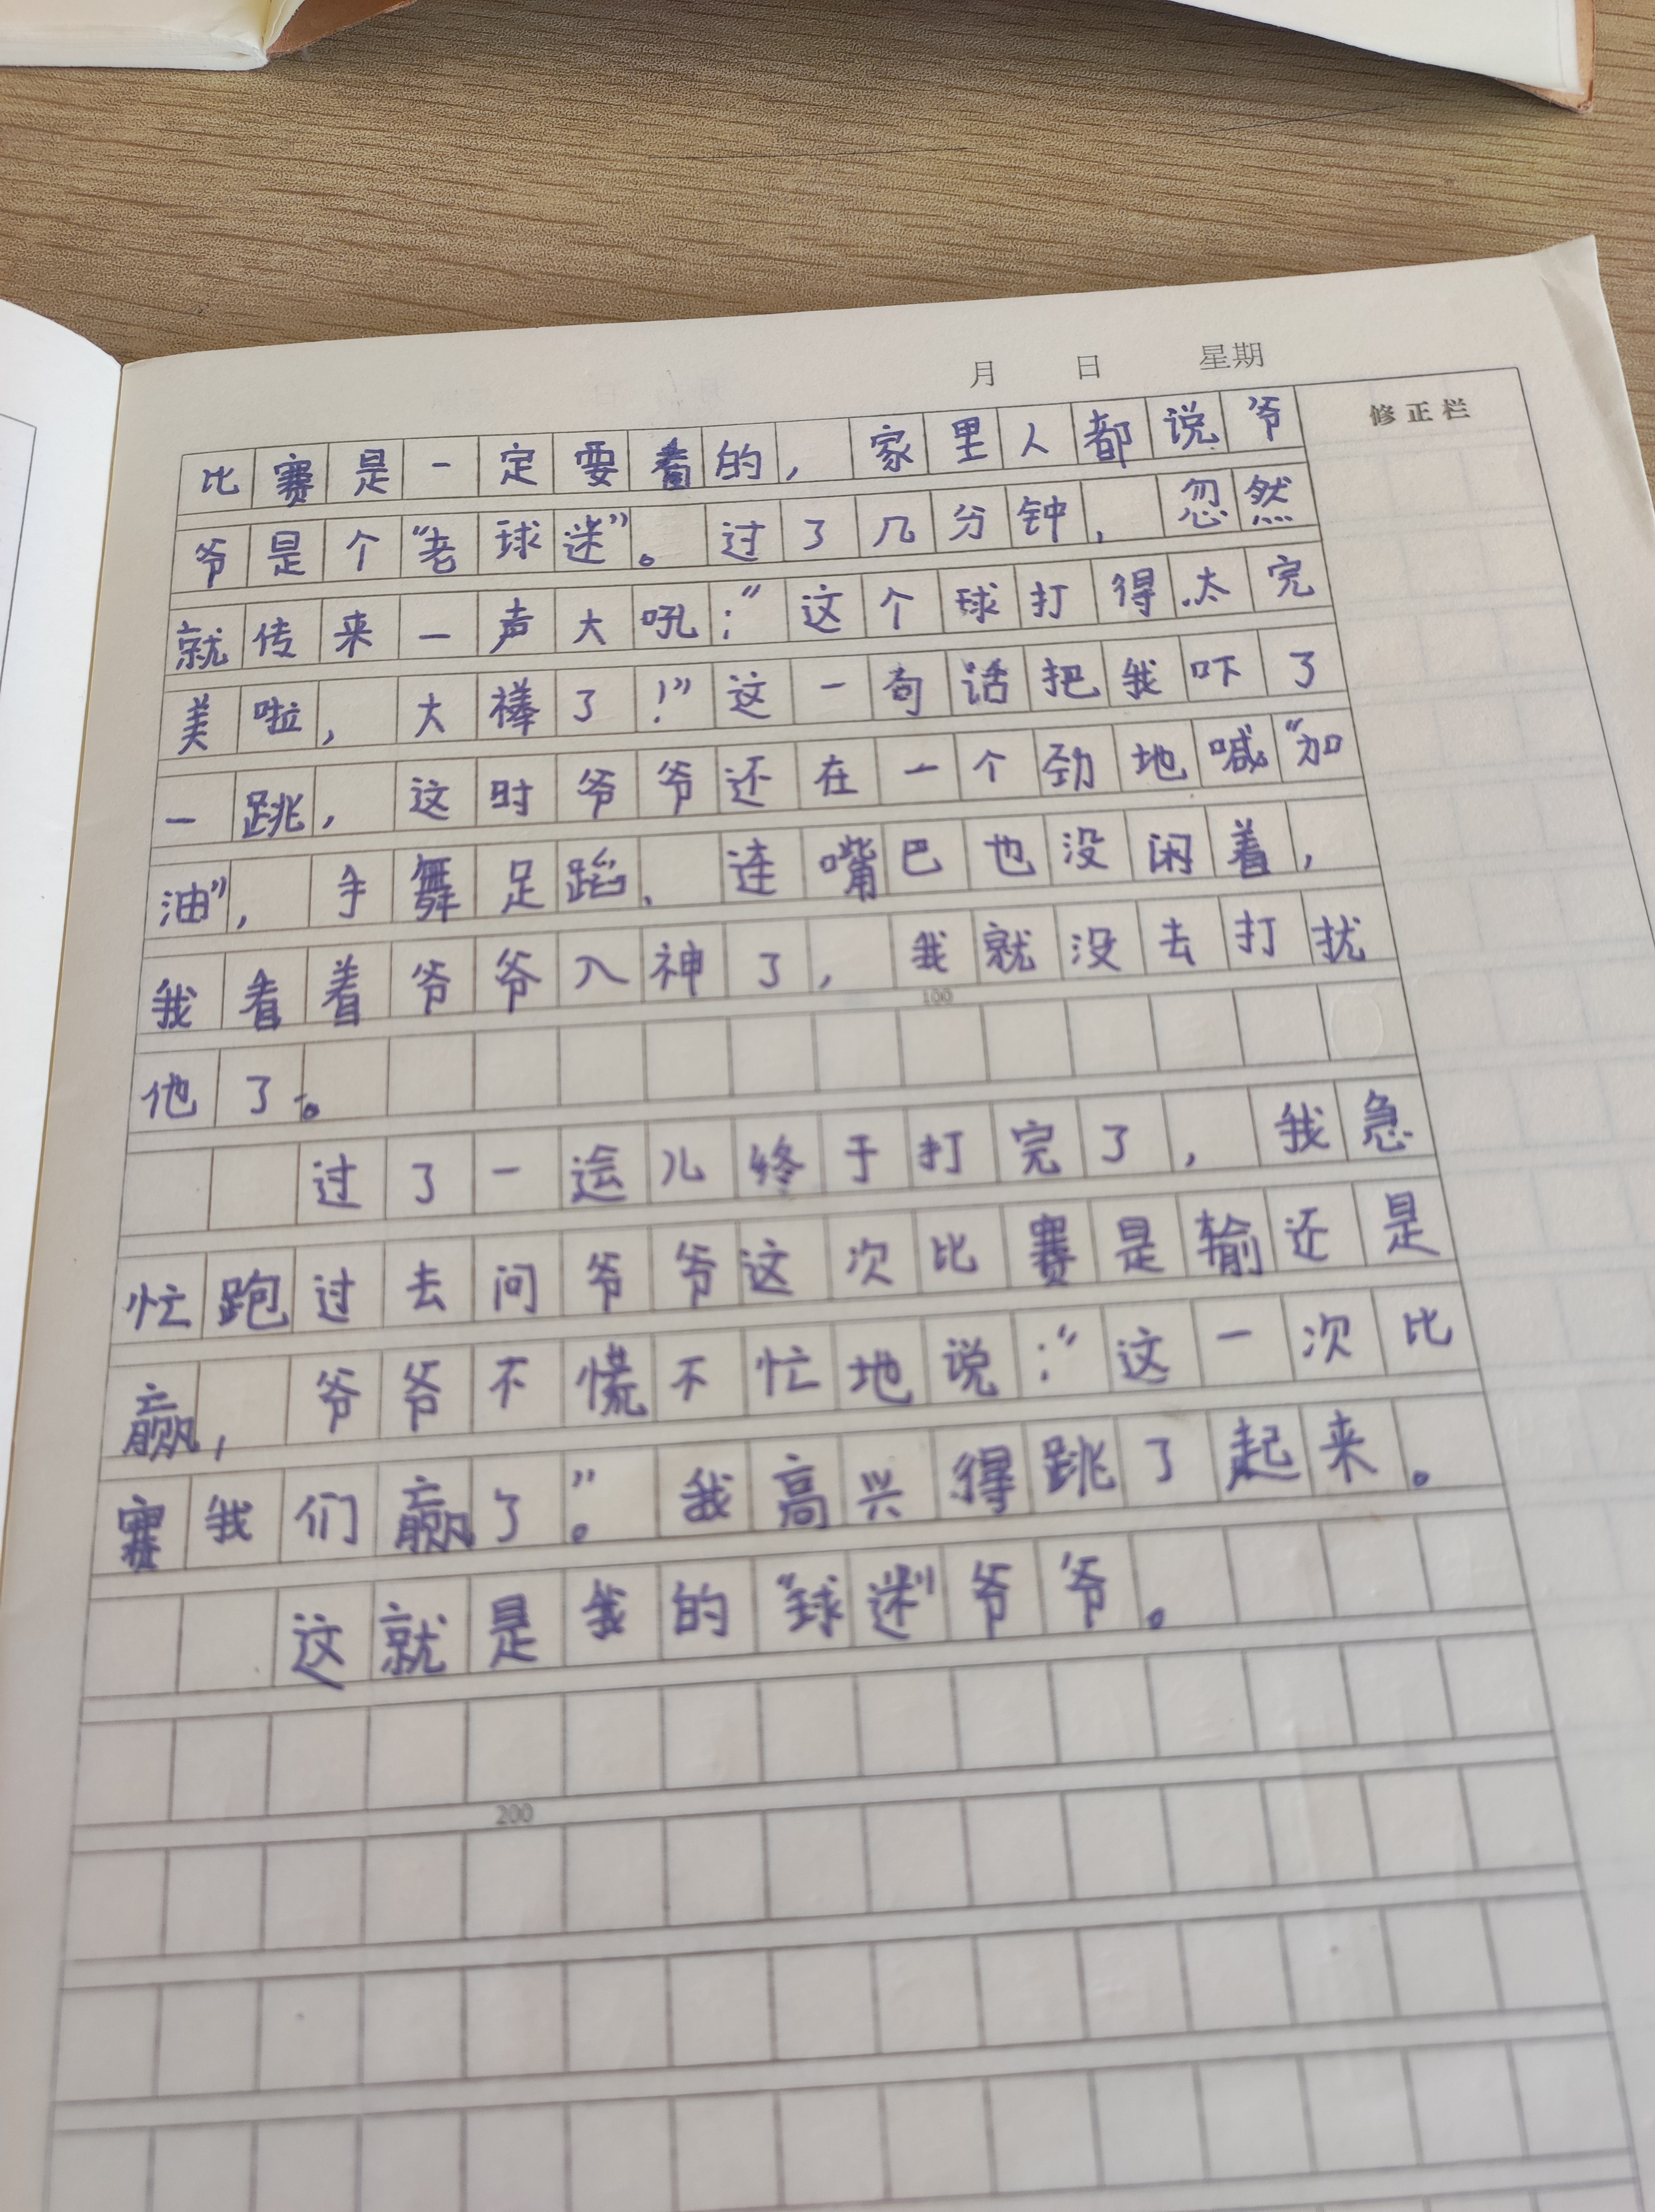 月 日 星期
修正栏
比赛是一定要看的，家里人都说爷
爷是个“老球迷”。过了几分钟，忽然
就传来一声大吼：“这个球打得太完
美啦，大棒了！”这一句话把我吓了
一跳，这时爷爷还在一个劲地喊“加
油”，手舞足蹈，连嘴巴也没闲着，
我看着爷爷入神了，我就没去打扰
100
他了。
过了一会儿终于打完了，我急
忙跑过去问爷爷这次比赛是输还是
赢，爷爷不慌不忙地说：“这一次比
赛我们赢了”。我高兴得跳了起来。
这就是我的“球迷”爷爷。
200